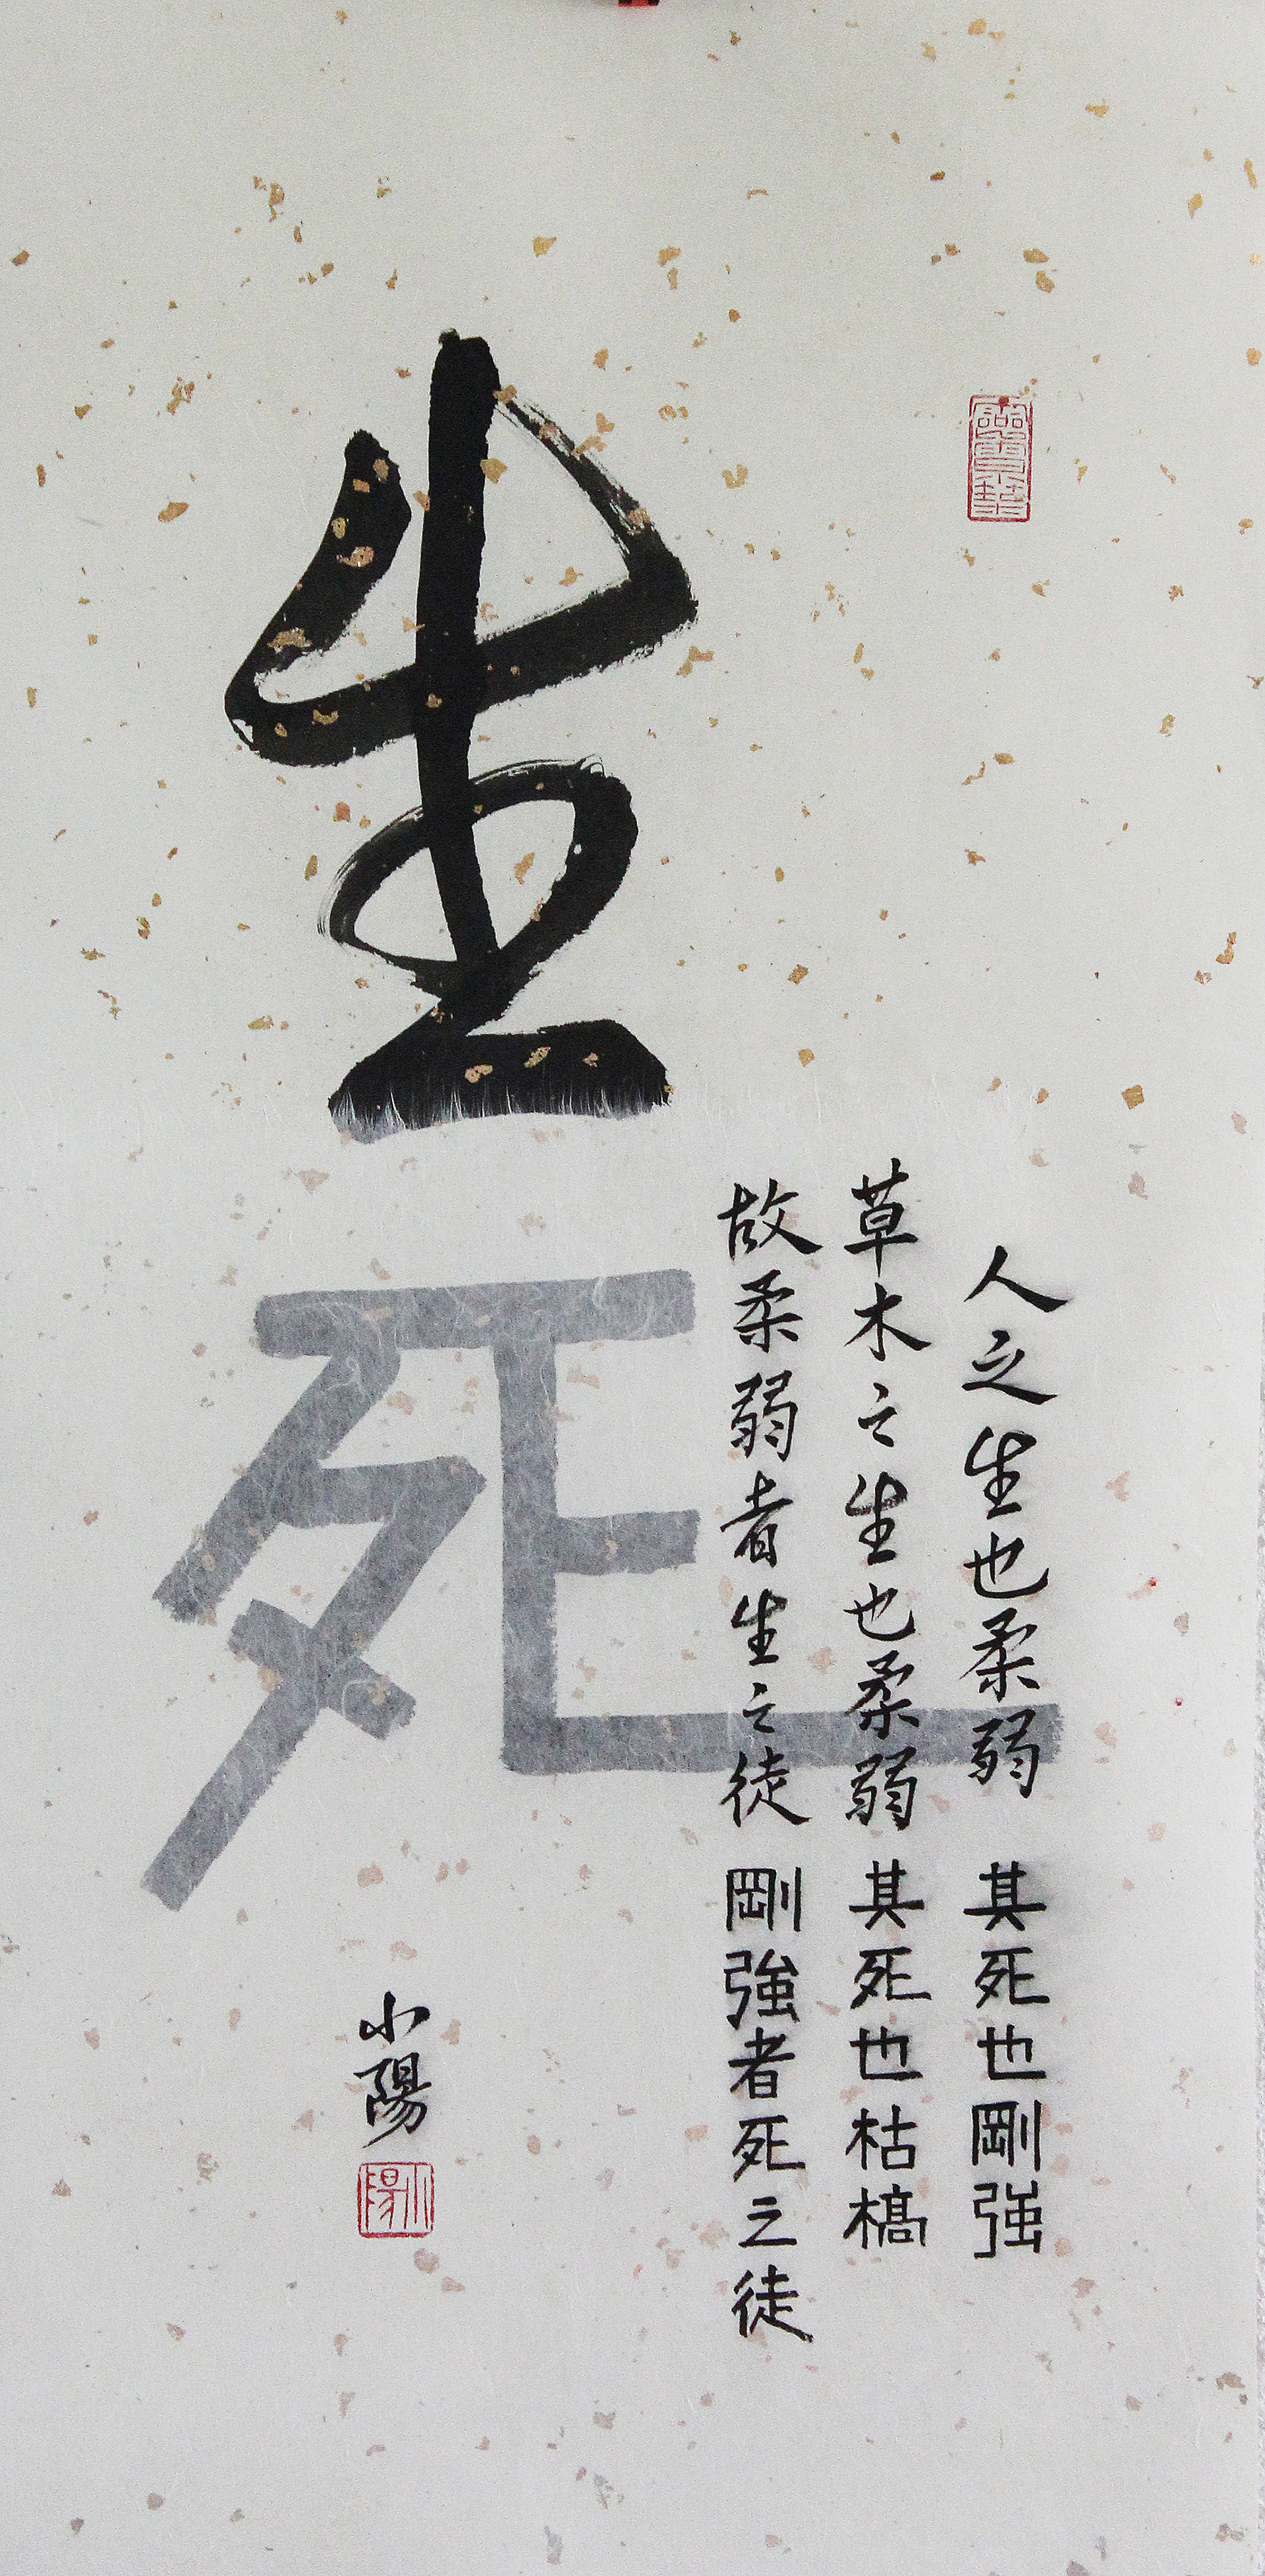 生
死
人之生也柔弱 其死也剛強
草木之生也柔弱 其死也枯槁
故柔弱者生之徒 剛強者死之徒
小陽
小陽